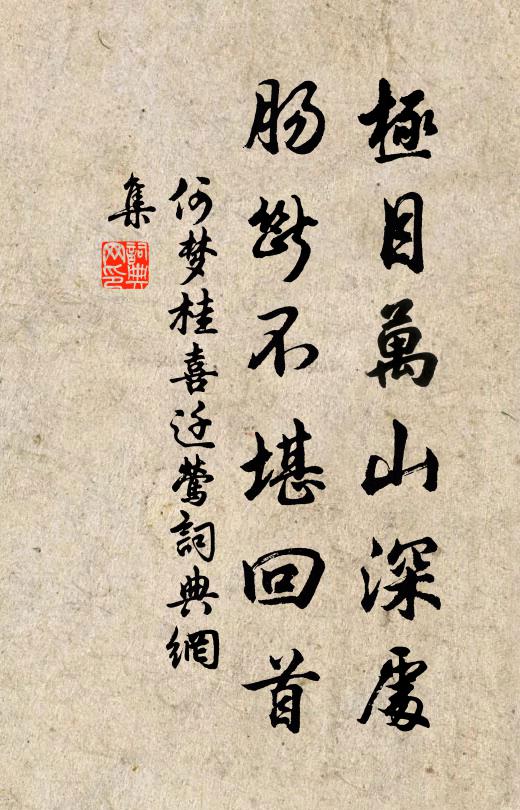 極目萬山深處
腸斷不堪回首
何梦桂喜迁鶯詞典網
集
詞典
网印